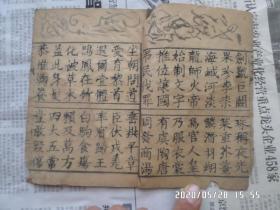 劍號巨闕 珠稱夜光
果珍李柰 菜重芥薑
海鹹河淡 鱗潛羽翔
龍師火帝 鳥官人皇
始制文字 乃服衣裳
推位讓國 有虞陶唐
弔民伐罪 周發商湯
坐朝問道 垂拱平章
愛育黎首 臣伏戎羌
遐邇壹體 率賓歸王
鳴鳳在樹 白駒食場
化被草木 賴及萬方
蓋此身髮 四大五常
恭惟鞠養 豈敢毀傷
业化经营重点龙头企业458家
2020/05/28 15:55